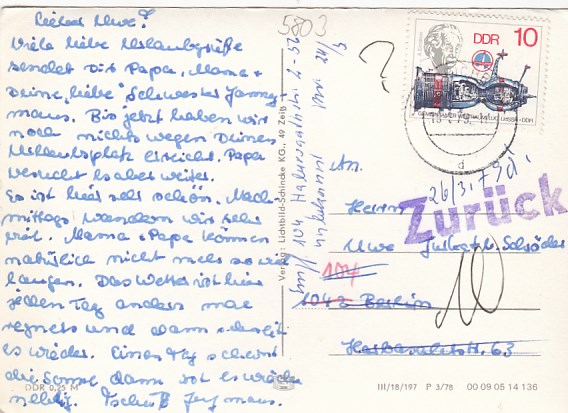 Lieber Uwe!
Viele liebe Urlaubsgrüße
sendet Dir Papa, Mama +
Deine „liebe“ Schwester
maus. Bis jetzt haben wir
noch nichts wegen Deines
Urlaubsplatz erreicht. Papa
versucht es aber weiter.
Es ist hier sehr schön. Nach-
mittags wandern wir sehr
viel. Mama + Papa können
natürlich nicht mehr so viel
laufen. Das Wetter ist hier
jeden Tag anders mal
regnets und dann schneit
es wieder. Einen Tag scheint
die Sonne dann ist es wieder
neblig. Tschüß
DDR 0,25 M
5803
?
Verlag: Lichtbild-Schincke KG., 49 Zeitz
104
unbekannt
DDR 10
GEMEINSAMER WELTRAUMFLUG UdSSR-DDR
d
26/3.79
Zurück
An.
Herrn
Uwe
104
1042 Berlin
63
III/18/197 P 3/78 00 09 05 14 136